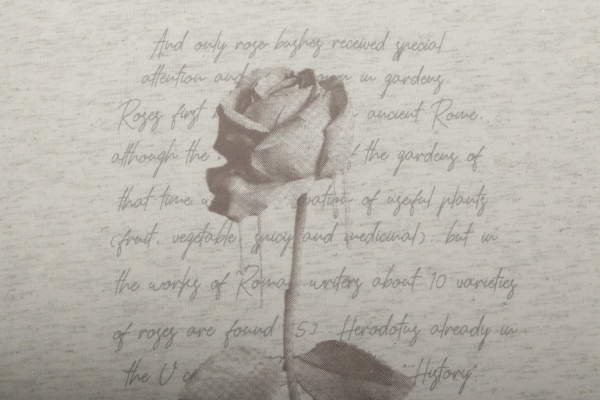 And only rose bushes received special
attention and in gardens.
Roses first ancient Rome.
although the the gardens of
that time of useful plants
(fruit, vegetable, spicy and medicinal), but in
the works of Roman writers about 10 varieties
of roses are found [5]. Herodotus already in
the V History